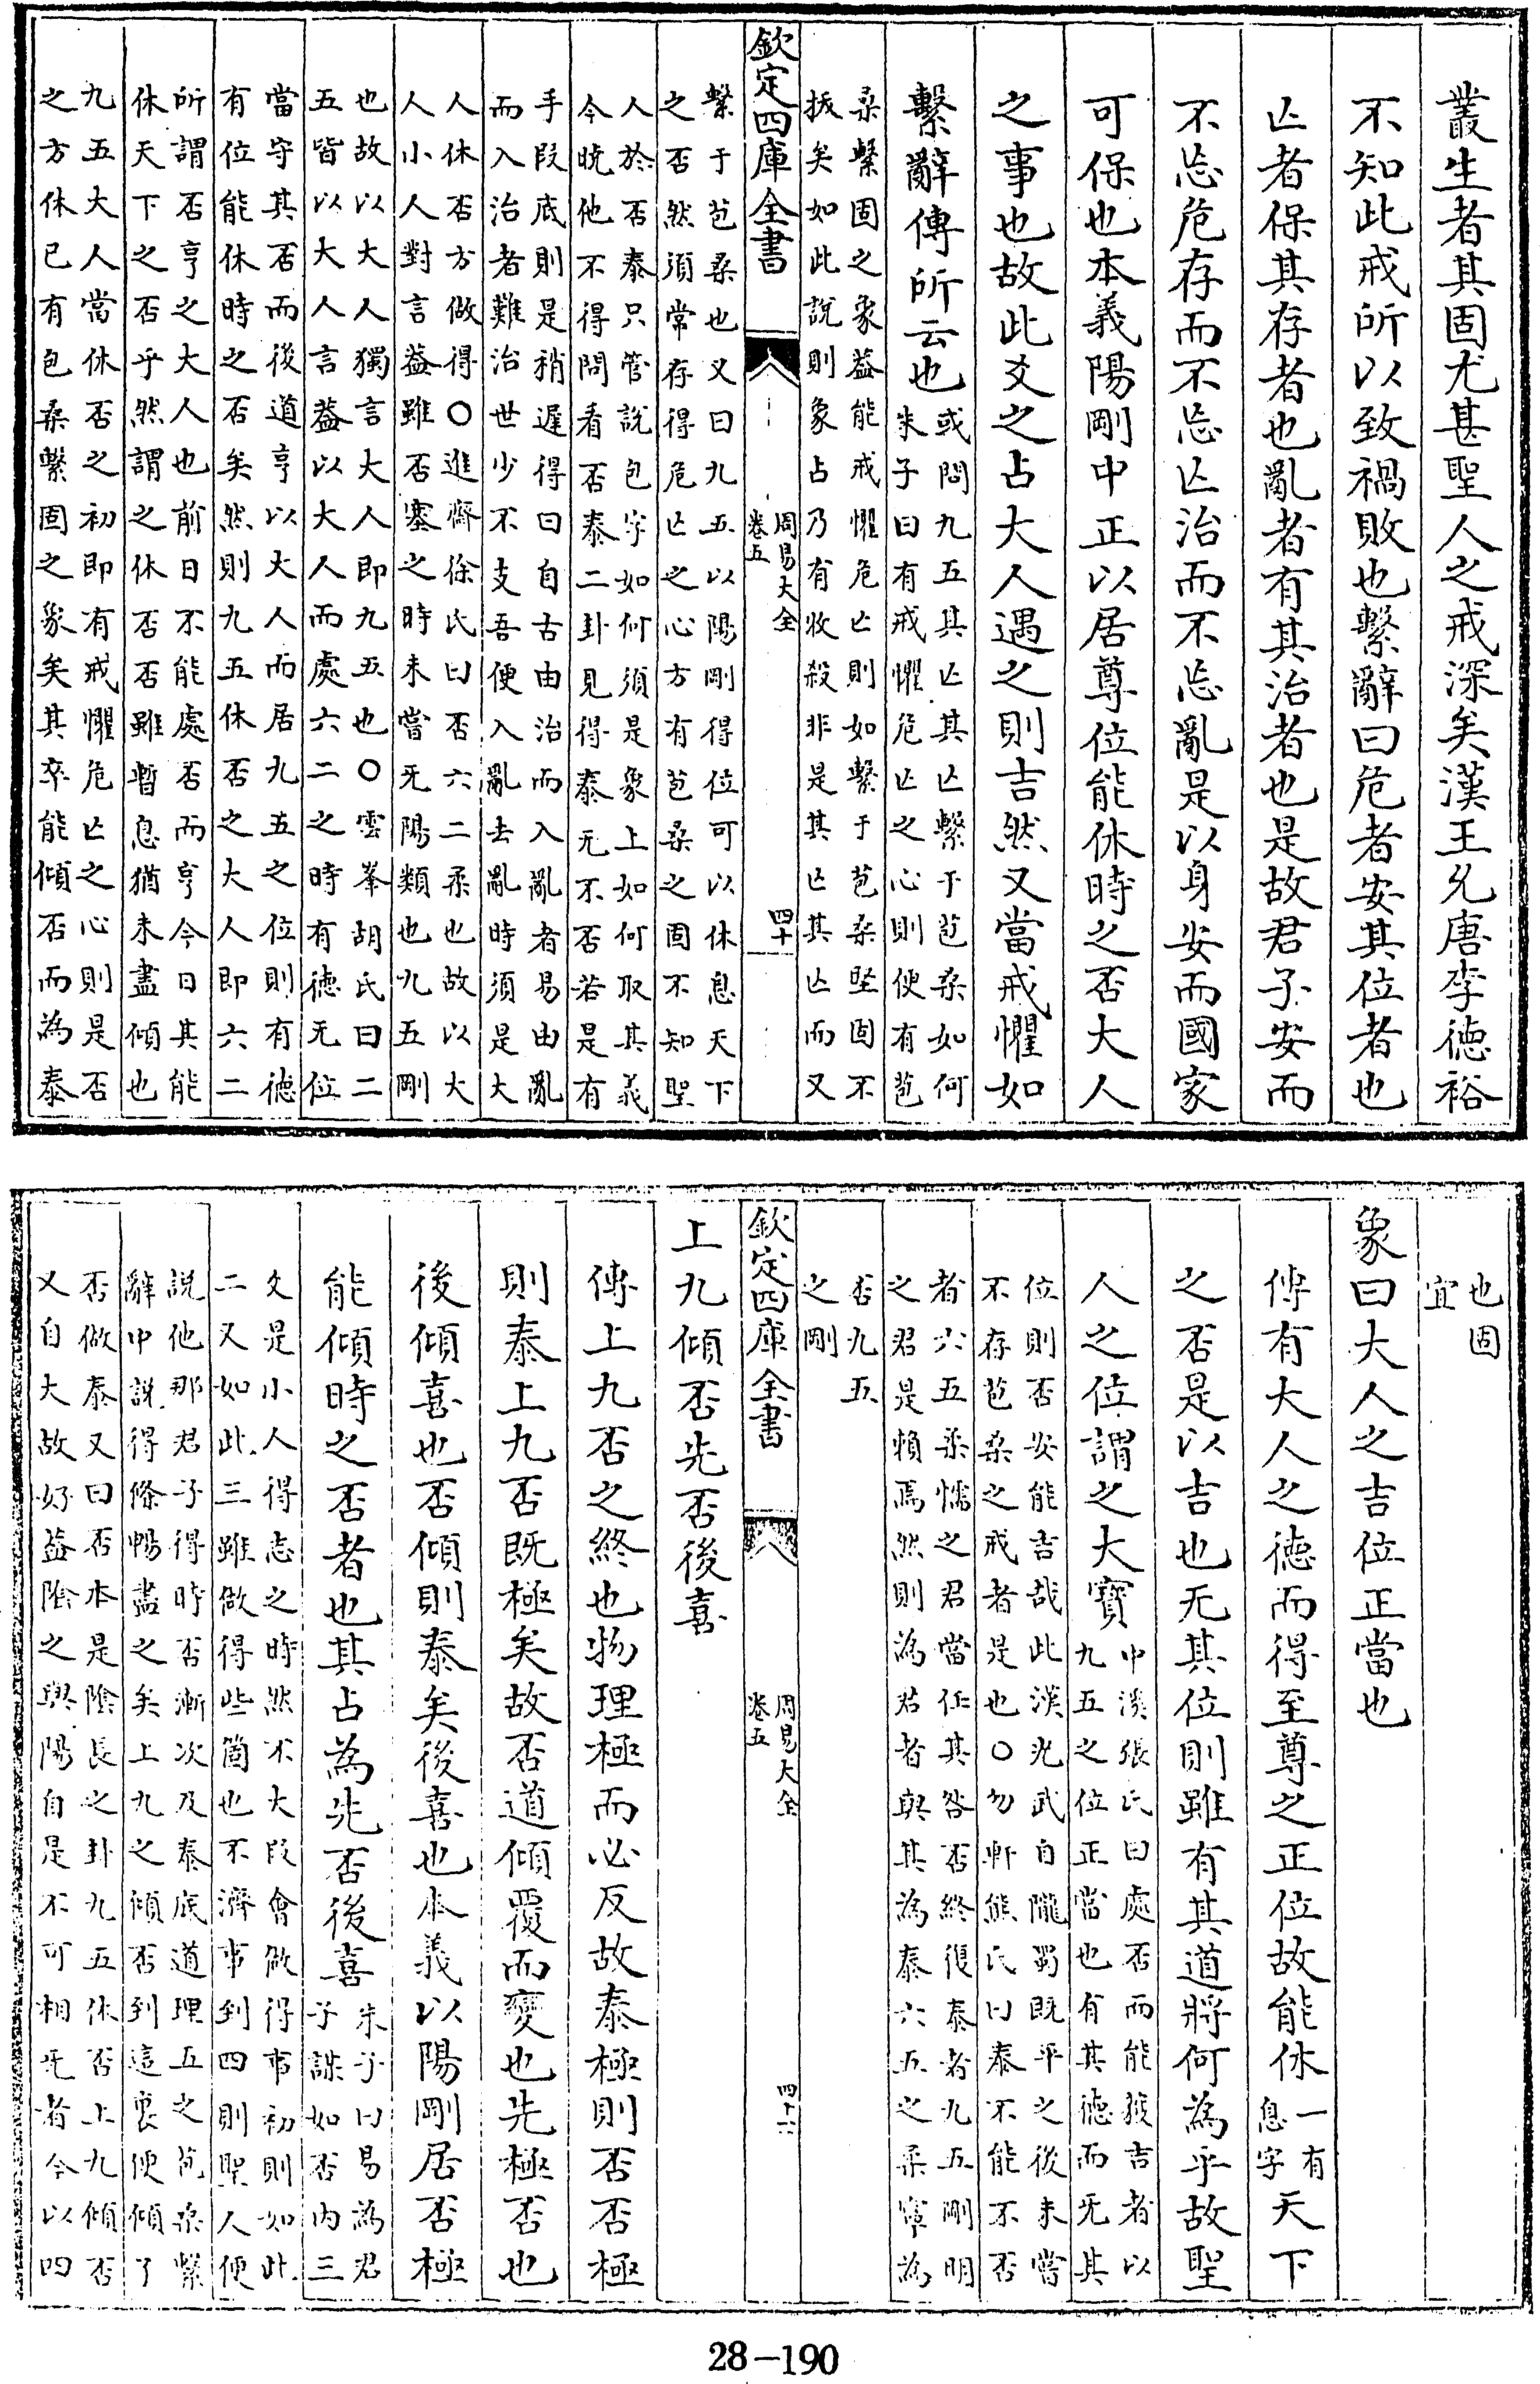 叢生者其固尤甚聖人之戒深矣漢王允唐李德裕
不知此戒所以致禍敗也繫辭曰危者安其位者也
亾者保其存者也亂者有其治者也是故君子安而
不忘危存而不忘亾治而不忘亂是以身安而國家
可保也本義陽剛中正以居尊位能休時之否大人
之事也故此爻之占大人遇之則吉然又當戒懼如
繫辭傳所云也
或問九五其亾其亾繫于苞桑如何
朱子曰有戒懼危亾之心則便有苞
桑繫固之象蓋能戒懼危亾則如繫于苞桑堅固不
拔矣如此說則象占乃有收殺非是其亾其亾而又
欽定四庫全書
周易大全
卷五
四十
繫于苞桑也又曰九五以陽剛得位可以休息天下
之否然須常存得危亾之心方有苞桑之固不知聖
人於否泰只管說包字如何須是象上如何取其義
今曉他不得問看否泰二卦見得泰无不否若是有
手段底則是稍遲得曰自古由治而入亂者易由亂
而入治者難治世少不支吾便入亂去亂時須是大
人休否方做得○進齋徐氏曰否六二柔也故以大
人小人對言蓋雖否塞之時未嘗无陽類也九五剛
也故以大人獨言大人即九五也○雲峯胡氏曰二
五皆以大人言蓋以大人而處六二之時有德无位
當守其否而後道亨以大人而居九五之位則有德
有位能休時之否矣然則九五休否之大人即六二
所謂否亨之大人也前日不能處否而亨今日其能
休天下之否乎然謂之休否否雖暫息猶未盡傾也
九五大人當休否之初即有戒懼危亾之心則是否
之方休已有包桑繫固之象矣其卒能傾否而為泰
也固
宜
象曰大人之吉位正當也
傳有大人之德而得至尊之正位故能休
一有
息字
天下
之否是以吉也无其位則雖有其道將何為乎故聖
人之位謂之大寶
中溪張氏曰處否而能獲吉者以
九五之位正當也有其德而无其
位則否安能吉哉此漢光武自隴蜀既平之後未嘗
不存苞桑之戒者是也○勿軒熊氏曰泰不能不否
者六五柔懦之君當任其咎否終復泰者九五剛明
之君是賴焉然則為君者與其為泰六五之柔寧為
否九五
之剛
欽定四庫全書
周易大全
卷五
四十一
上九傾否先否後喜
傳上九否之終也物理極而必反故泰極則否否極
則泰上九否既極矣故否道傾覆而變也先極否也
後傾喜也否傾則泰矣後喜也本義以陽剛居否極
能傾時之否者也其占為先否後喜
朱子曰易為君
子謀如否內三
爻是小人得志之時然不大段會做得事初則如此
二又如此三雖做得些箇也不濟事到四則聖人便
說他那君子得時否漸次及泰底道理五之苞桑繫
辭中說得條暢盡之矣上九之傾否到這裏便傾了
否做泰又曰否本是陰長之卦九五休否上九傾否
又自大故好蓋陰之與陽自是不可相无者今以四
28-190